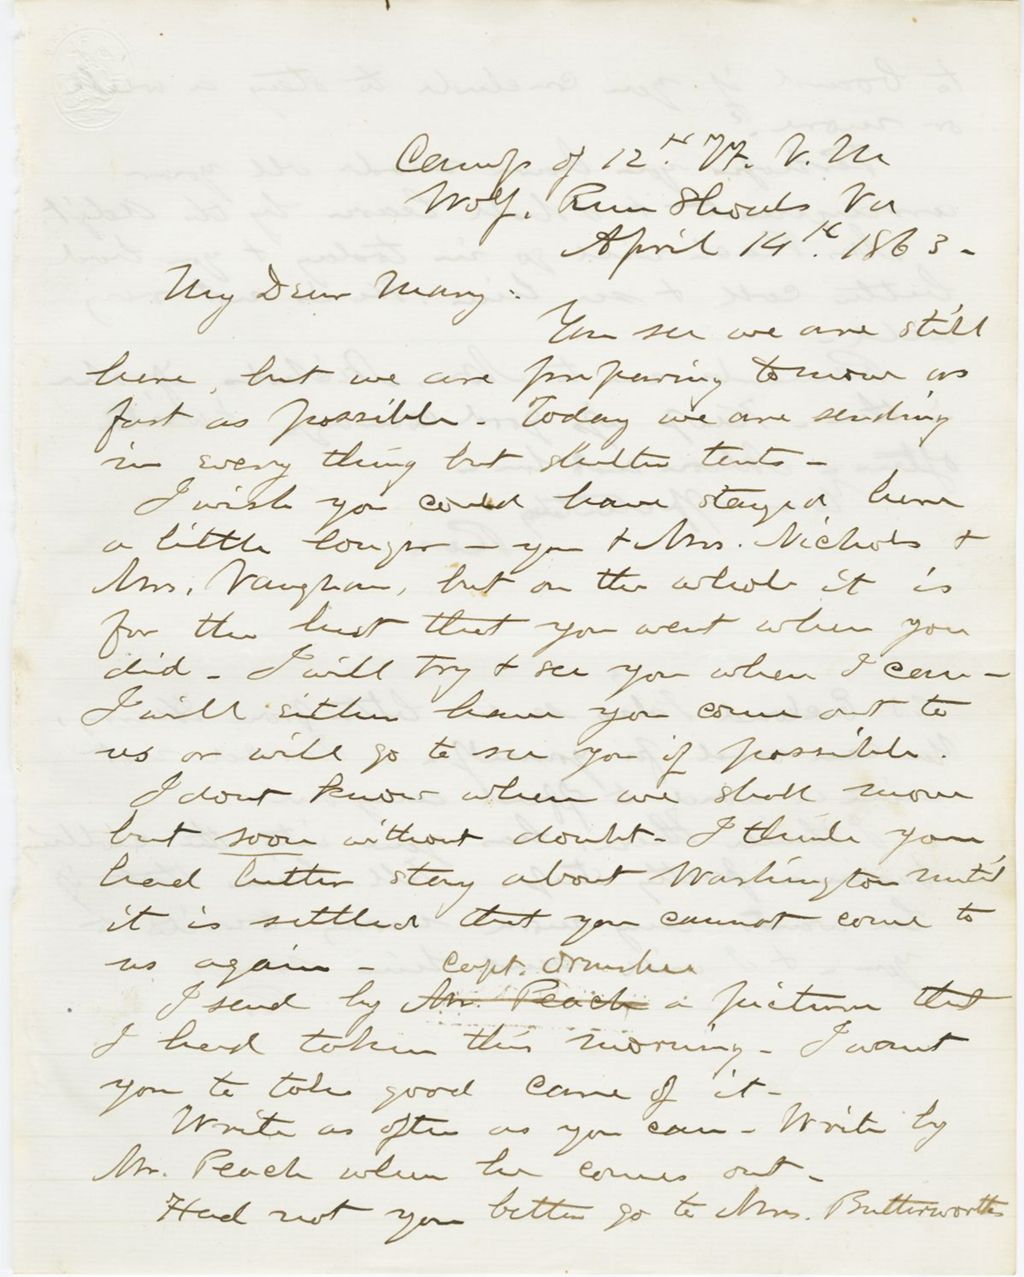 Camp of 12th Vt. V. M
Wolf, Run Shoals Va
April 14th. 1863-
My Dear Mary:
You see we are still
here, but we are preparing to move as
fast as possible - Today we are sending
in every thing but shelter tents -
I wish you could have stayed here
a little longer - you & Mrs. Nichols &
Mrs. Vaughan, but on the whole it is
for the best that you went when you
did - I will try & see you when I can -
I will either have you come out to
us or will go to see you if possible.
I dont know when we shall move
but soon without doubt - I think you
had better stay about Washington until
it is settled that you cannot come to
us again - Capt. Ormsbee
I send by Mr. Peach a picture that
I had taken this morning - I want
you to take good care of it -
Write as often as you can - Write by
Mr. Peach when he comes out -
Had not you better go to Mrs. Butterworths